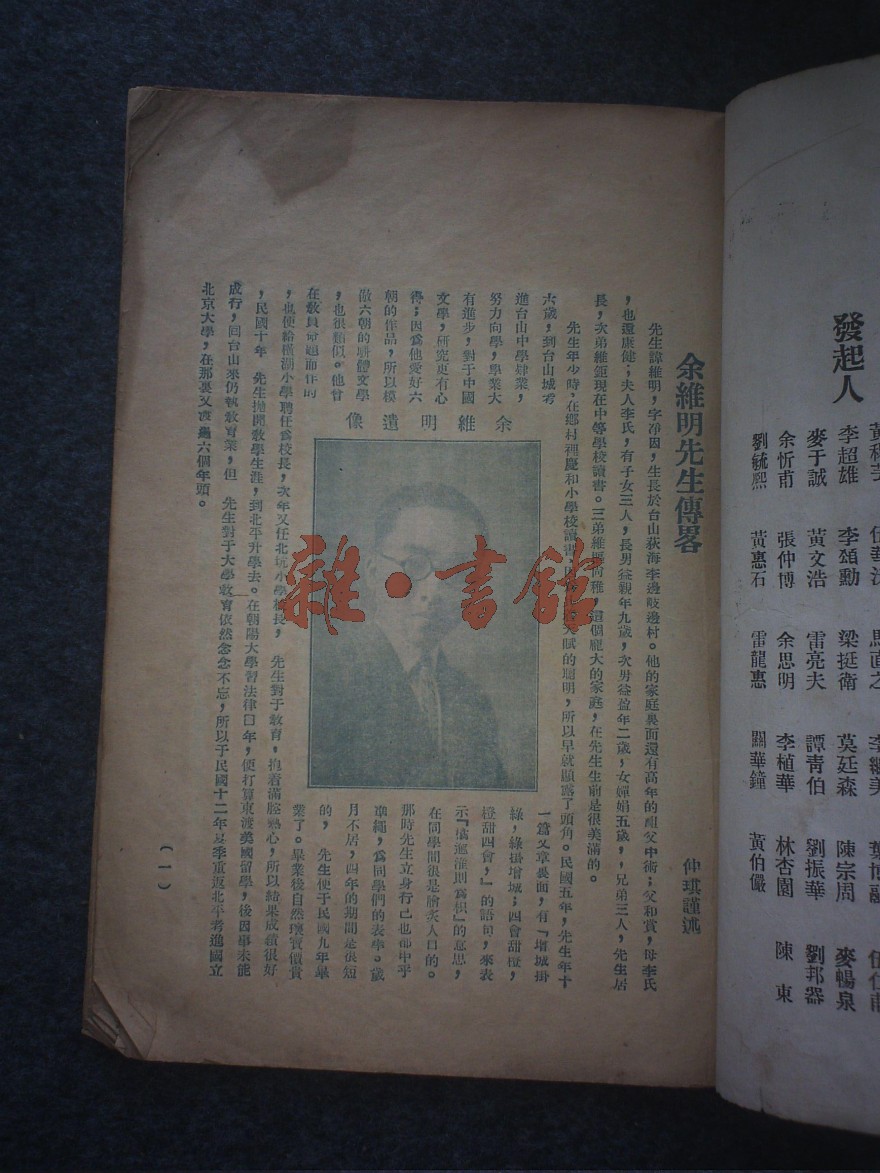 發起人
李超雄 梁挺衛 莫廷森 陳宗周 麥暢泉
麥于誠 黃文浩 雷亮夫 譚青伯 劉振華 劉邦器
余忻甫 張仲博 余思明 李植華 林杏園 陳東
劉毓熙 黃惠石 雷龍惠 關華鐘 黃伯儼
余維明先生傳畧
仲琪謹述
先生諱維明，字凈因，生長於台山荻海李邊岐邊村。他的家庭裏面還有高年的祖父中術；父和賞，母李氏
，也還康健；夫人李氏，有子女三人，長男益親年九歲，次男益盈年二歲，女嬋娟五歲，，兄弟三人，先生居
長，次弟維鉅現在中等學校讀書。三弟維 尚稚，這個龐大的家庭，在先生生前是很美滿的。
先生年少時，在鄉村裡慶和小學校讀書，因 天賦的聰明，所以早就顯露了頭角。民國五年，先生年十
六歲，到台山城考
進台山中學肄業，
努力向學，學業大
有進步，對于中國
文學，研究更有心
得；因爲他愛好六
朝的作品，所以模
倣六朝的駢體文學
，也很類似。他曾
在教員命題而作的
余維明遺像
一篇文章裏面，有『增城掛
綠，綠掛增城；四會甜橙，
橙甜四會，』的語句，來表
示『橘逾淮則爲枳』的意思，
在同學間很是膾炙人口的。
那時先生立身行己也都中乎
準繩，爲同學們的表率。歲
月不居，四年的期間是很短
的，先生便于民國九年畢
業了。畢業後自然瓌寶價貴
，也便給橫湖小學聘任爲校長，次年又任北坑小學校長，先生對于教育，抱着滿腔熱心，所以結果成績很好
，民國十年，先生抛開教學生涯，到北平升學去。在朝陽大學習法律日年，便打算東渡美國留學，後因事未能
成行，回台山來仍執教育業，但先生對于大學教育依然念念不忘，所以于民國十二年夏季重返北平考進國立
北京大學，在那裏又渡過六個年頭。
（一）
雜·書館